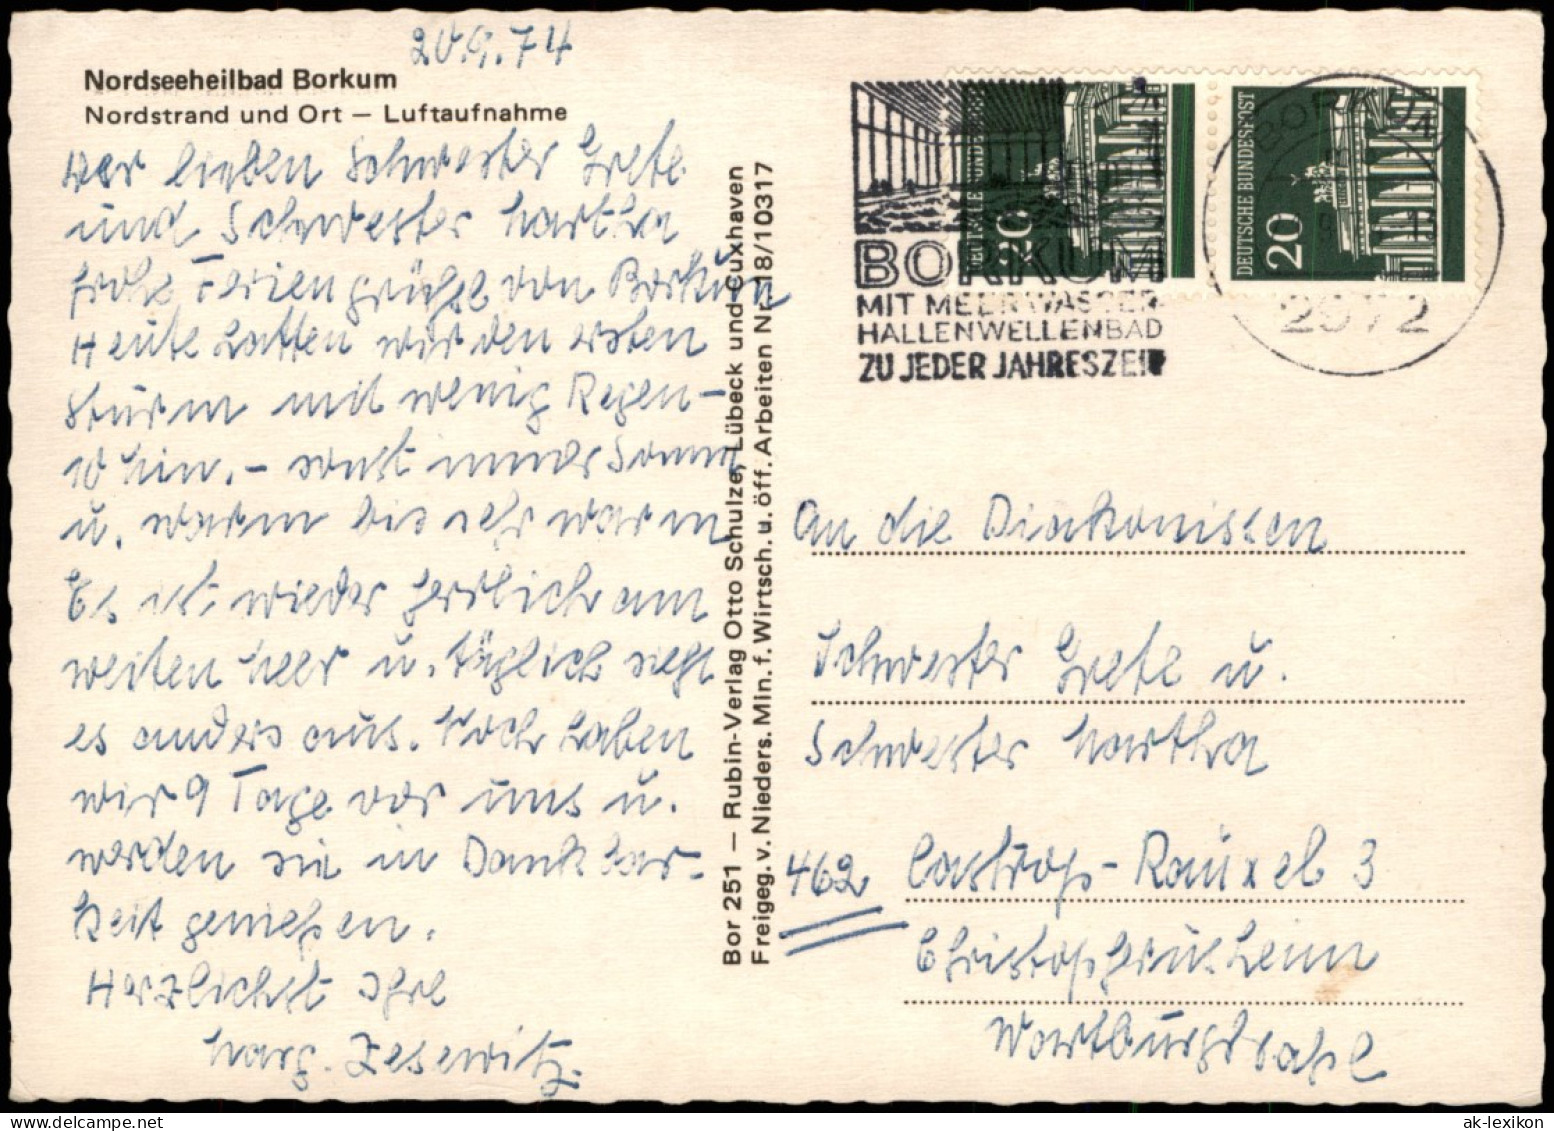 20.9.74
Nordseeheilbad Borkum
Nordstrand und Ort — Luftaufnahme
lieben Schwester Grete
und Schwester Martha
frohe Feriengrüße von Borkum
Heute hatten wir den ersten
Sturm mit wenig Regen –
10 Min. – sonst immer Sonne
u. warm bis sehr warm
Es ist wieder herrlich am
weiten Meer u. täglich sieht
es anders aus. Noch haben
wir 9 Tage vor uns u.
werden sie in Dankbar-
keit genießen.
Herzlichst Ihre
Marg. Zesewitz
Bor 251 — Rubin-Verlag Otto Schulze, Lübeck und Cuxhaven
Freigeg. v. Nieders. Min. f. Wirtsch. u. öff. Arbeiten Nr. 18/10317
BORKUM
MIT MEERWASSER-
HALLENWELLENBAD
ZU JEDER JAHRESZEIT
DEUTSCHE BUNDESPOST
20
DEUTSCHE BUNDESPOST
20
BORKUM
2972
An die Diakonissen
Schwester Grete u.
Schwester Martha
462 Castrop-Rauxel 3
Christophorusheim
Wartburgstraße
ak-lexikon.de